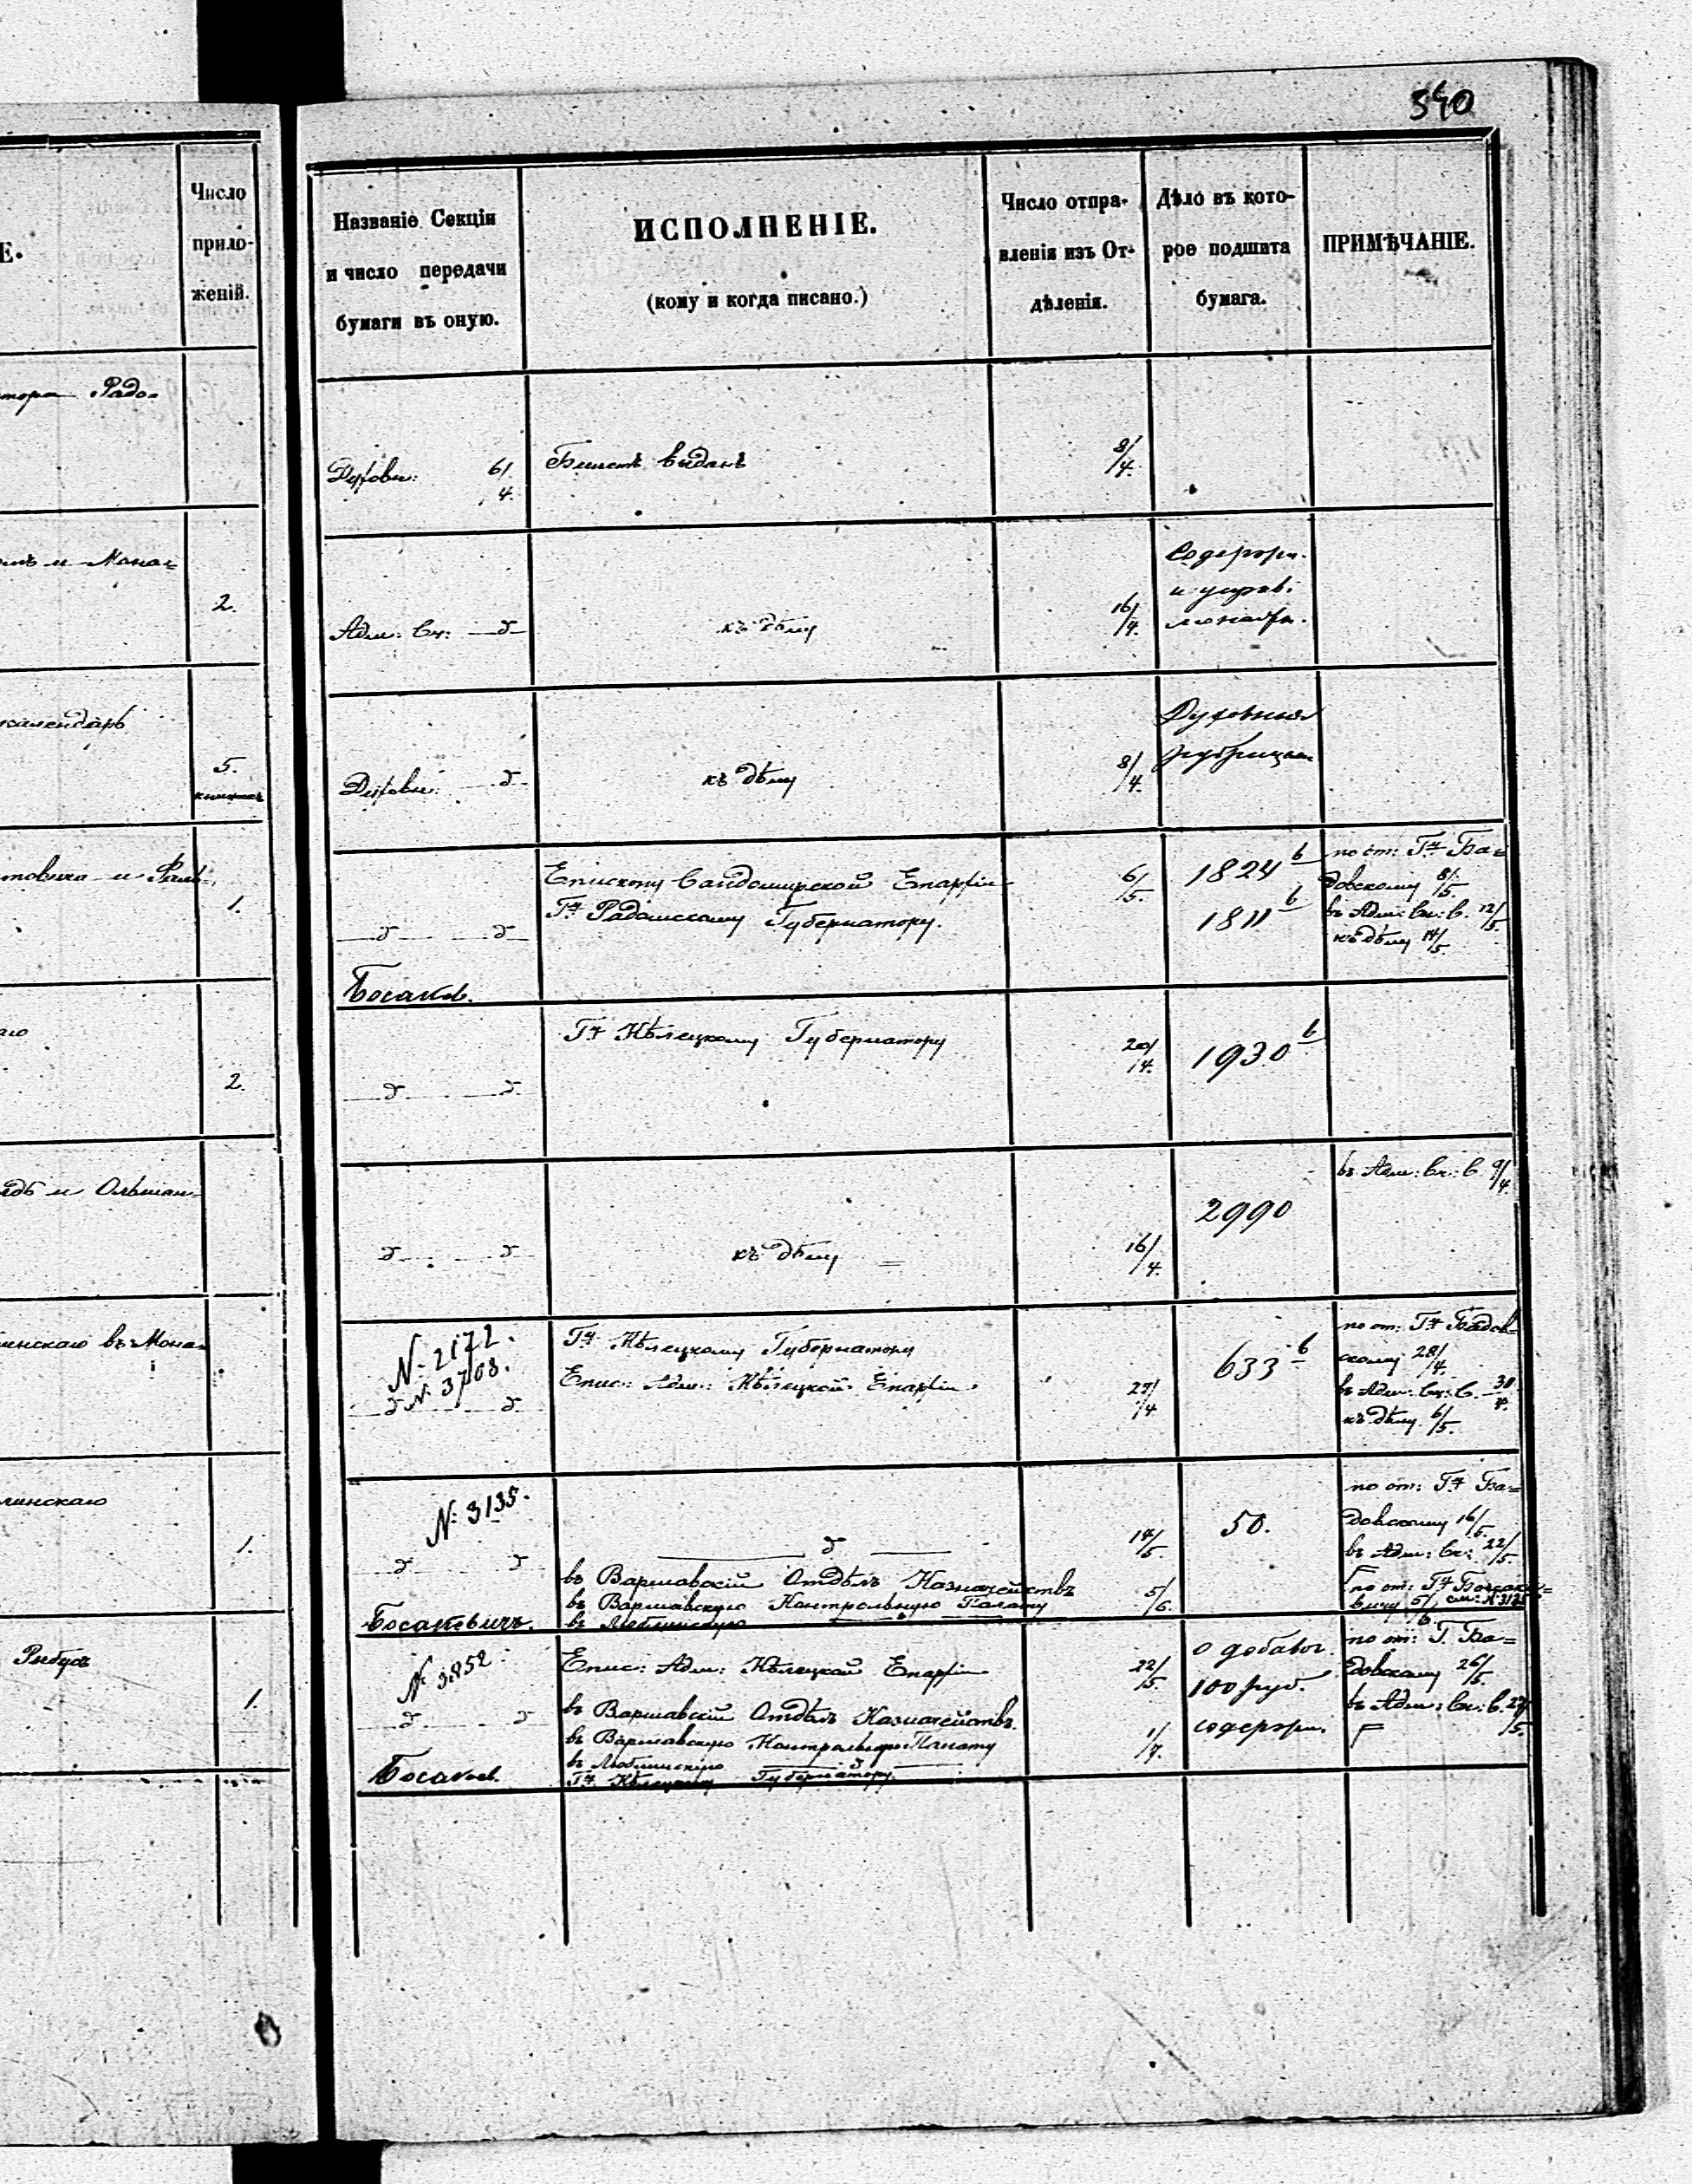 340
Е.
Число
прило-
женій.
Названіе Секціи
и число передачи
бумаги въ оную.
ИСПОЛНЕНІЕ.
(кому и когда писано.)
Число отпра-
вленія изъ От-
дѣленія.
Дѣло въ кото-
рое подшита
бумага.
ПРИМѢЧАНІЕ.
тора Радо-
Духовн: 6/4.
Билетъ выданъ
8/4.
и Мона=
2.
Адм: Сч: —д—
къ дѣлу
16/4.
Содержан.
и управ:
монаст.
календарь
5.
книжекъ
Духовн: —д—
къ дѣлу
8/4.
Духовныя
рубрицели
товича и
1.
—д— —д—
Босаков.
Епископу Сандомирской Епархіи
Гну Радомскому Губернатору.
6/5.
1824 в
1811 в
по от: Гну Ба=
довскому 8/5.
въ Адм: Сч: С. 12/5.
къ дѣлу 14/5.
аго
2.
—д— —д—
Гну Кѣлецкому Губернатору
20/4.
1930 в
и Ольшан-
—д— —д—
къ дѣлу
16/4.
2990
въ Адм: Сч: С. 9/4.
инскаго въ Мона-
№ 2172.
№ 3708.
—д— —д—
Гну Кѣлецкому Губернатору
Епис: Адм: Кѣлецкой Епархіи.
27/4
633 в
по от: Гну Бадов-
скому 28/4.
въ Адм: Сч: С. 30/4.
къ дѣлу 6/5.
линскаго
1.
№ 3135.
—д— —д—
Босакевичъ.
—д—
въ Варшавскій Отдѣлъ Казначействъ
въ Варшавскую Контрольную Палату
въ Люблинскую
14/5.
5/6.
50.
по от: Гну Ба=
довскому 16/5.
въ Адм: Сч: 22/5
по от: Гну Босаке=
вичу 5/6 см: №
Рыбуса
1.
№ 3852
—д— —д—
Босаков.
Епис: Адм: Кѣлецкой Епархіи
въ Варшавскій Отдѣлъ Казначействъ.
въ Варшавскую Контрольную Палату
въ Люблинскую —д—
Гну Кѣлецкому Губернатору.
22/5.
1/7.
о добавоч.
100 руб.
содержан.
по от: Г. Ба=
довскому 26/5.
въ Адм: Сч: С. 27/5.